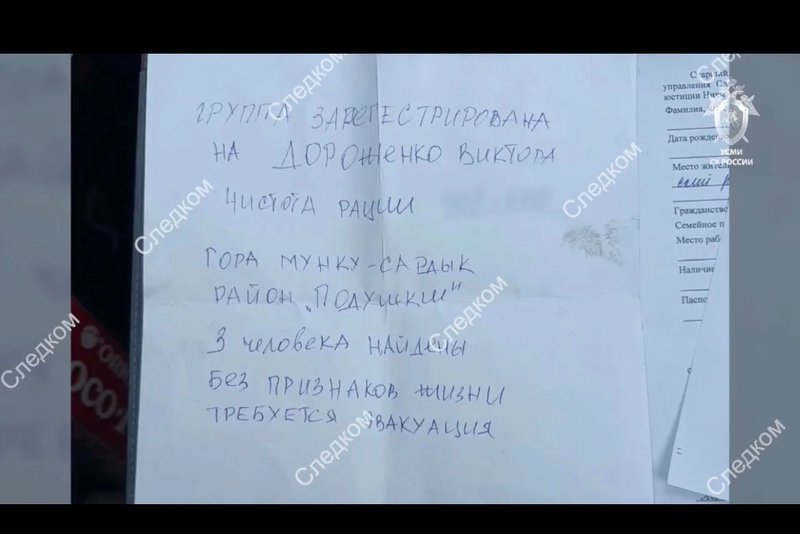 ГРУППА ЗАРЕГЕСТРИРОВАНА
НА ДОРОЖЕНКО ВИКТОРА
ЧИСТОТА РАЦИИ
ГОРА МУНКУ-САРДЫК
РАЙОН „ПОДУШКИ"
3 ЧЕЛОВЕКА НАЙДЕНЫ
БЕЗ ПРИЗНАКОВ ЖИЗНИ
ТРЕБУЕТСЯ ЭВАКУАЦИЯ
Старший
управления
юстиции
Фамилия,
Дата рожде
Место жител
Гражданств
Семейное п
Место раб
Наличие
Паспо
УСМИ
СК РОССИИ
Следком
Следком
Следком
Следком
Следком
Следком
Следком
Следком
Следком